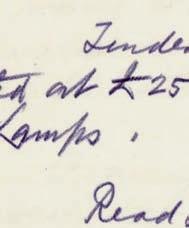 Tender
ed at £25
Lamps.
Read